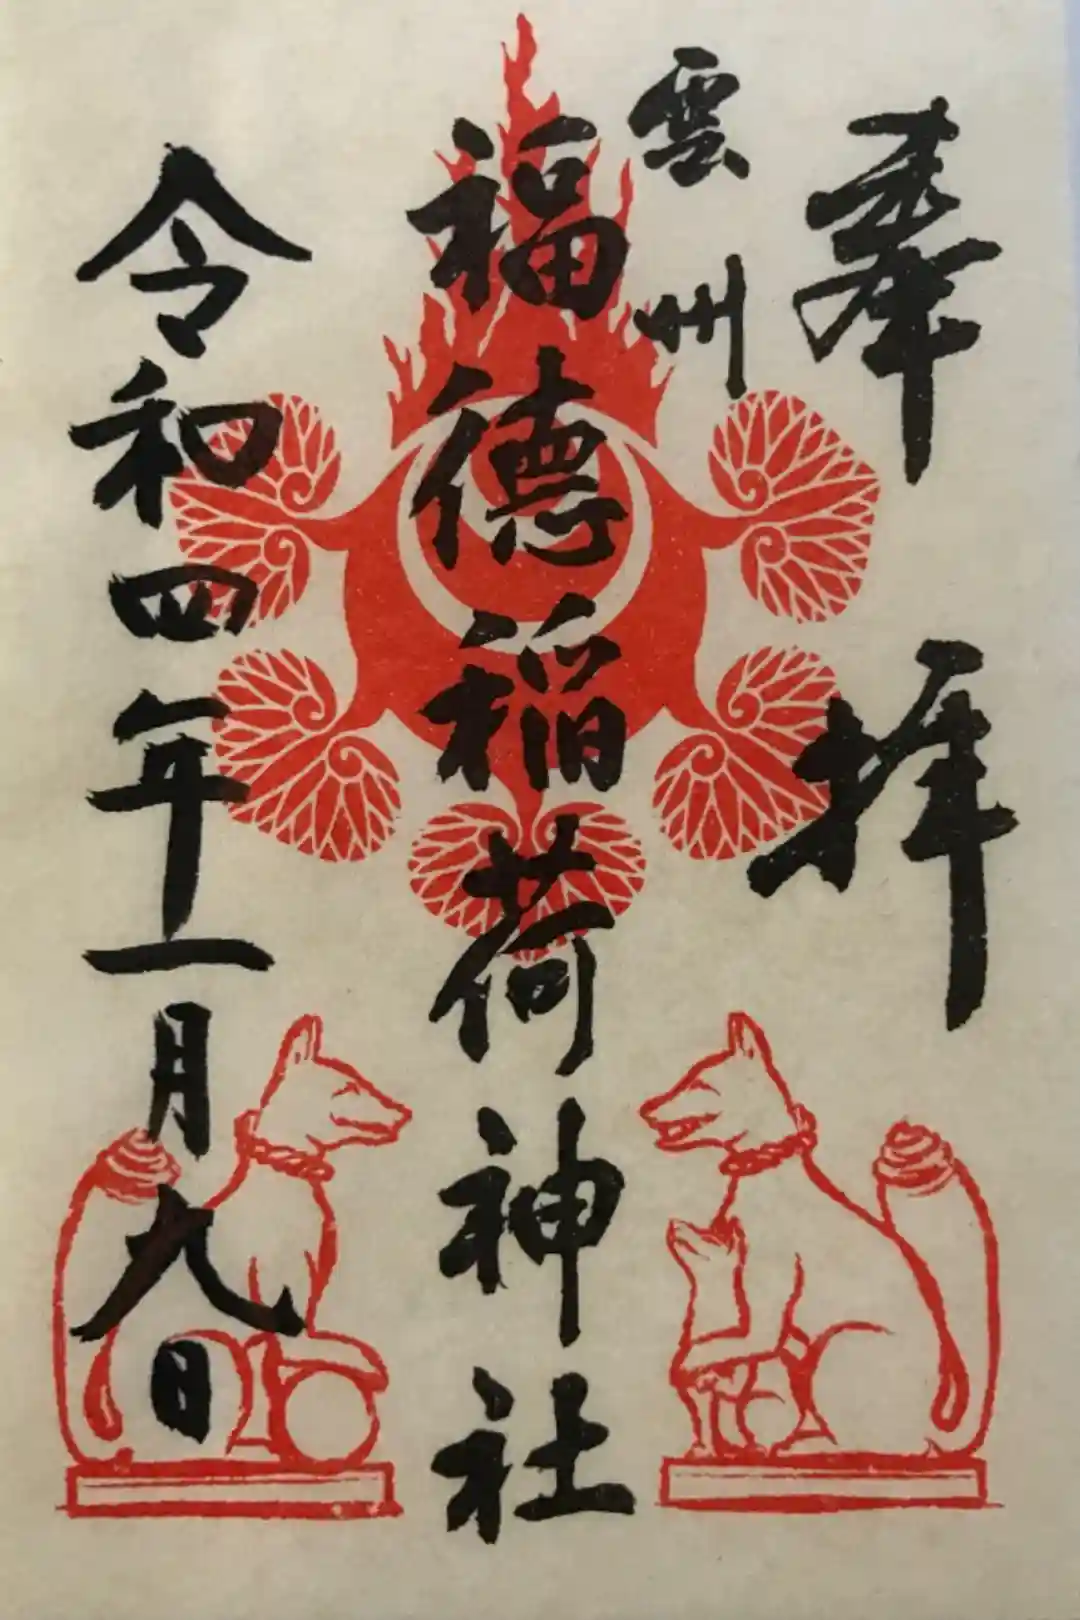 奉拝
雲州
福德稲荷神社
令和四年一月九日